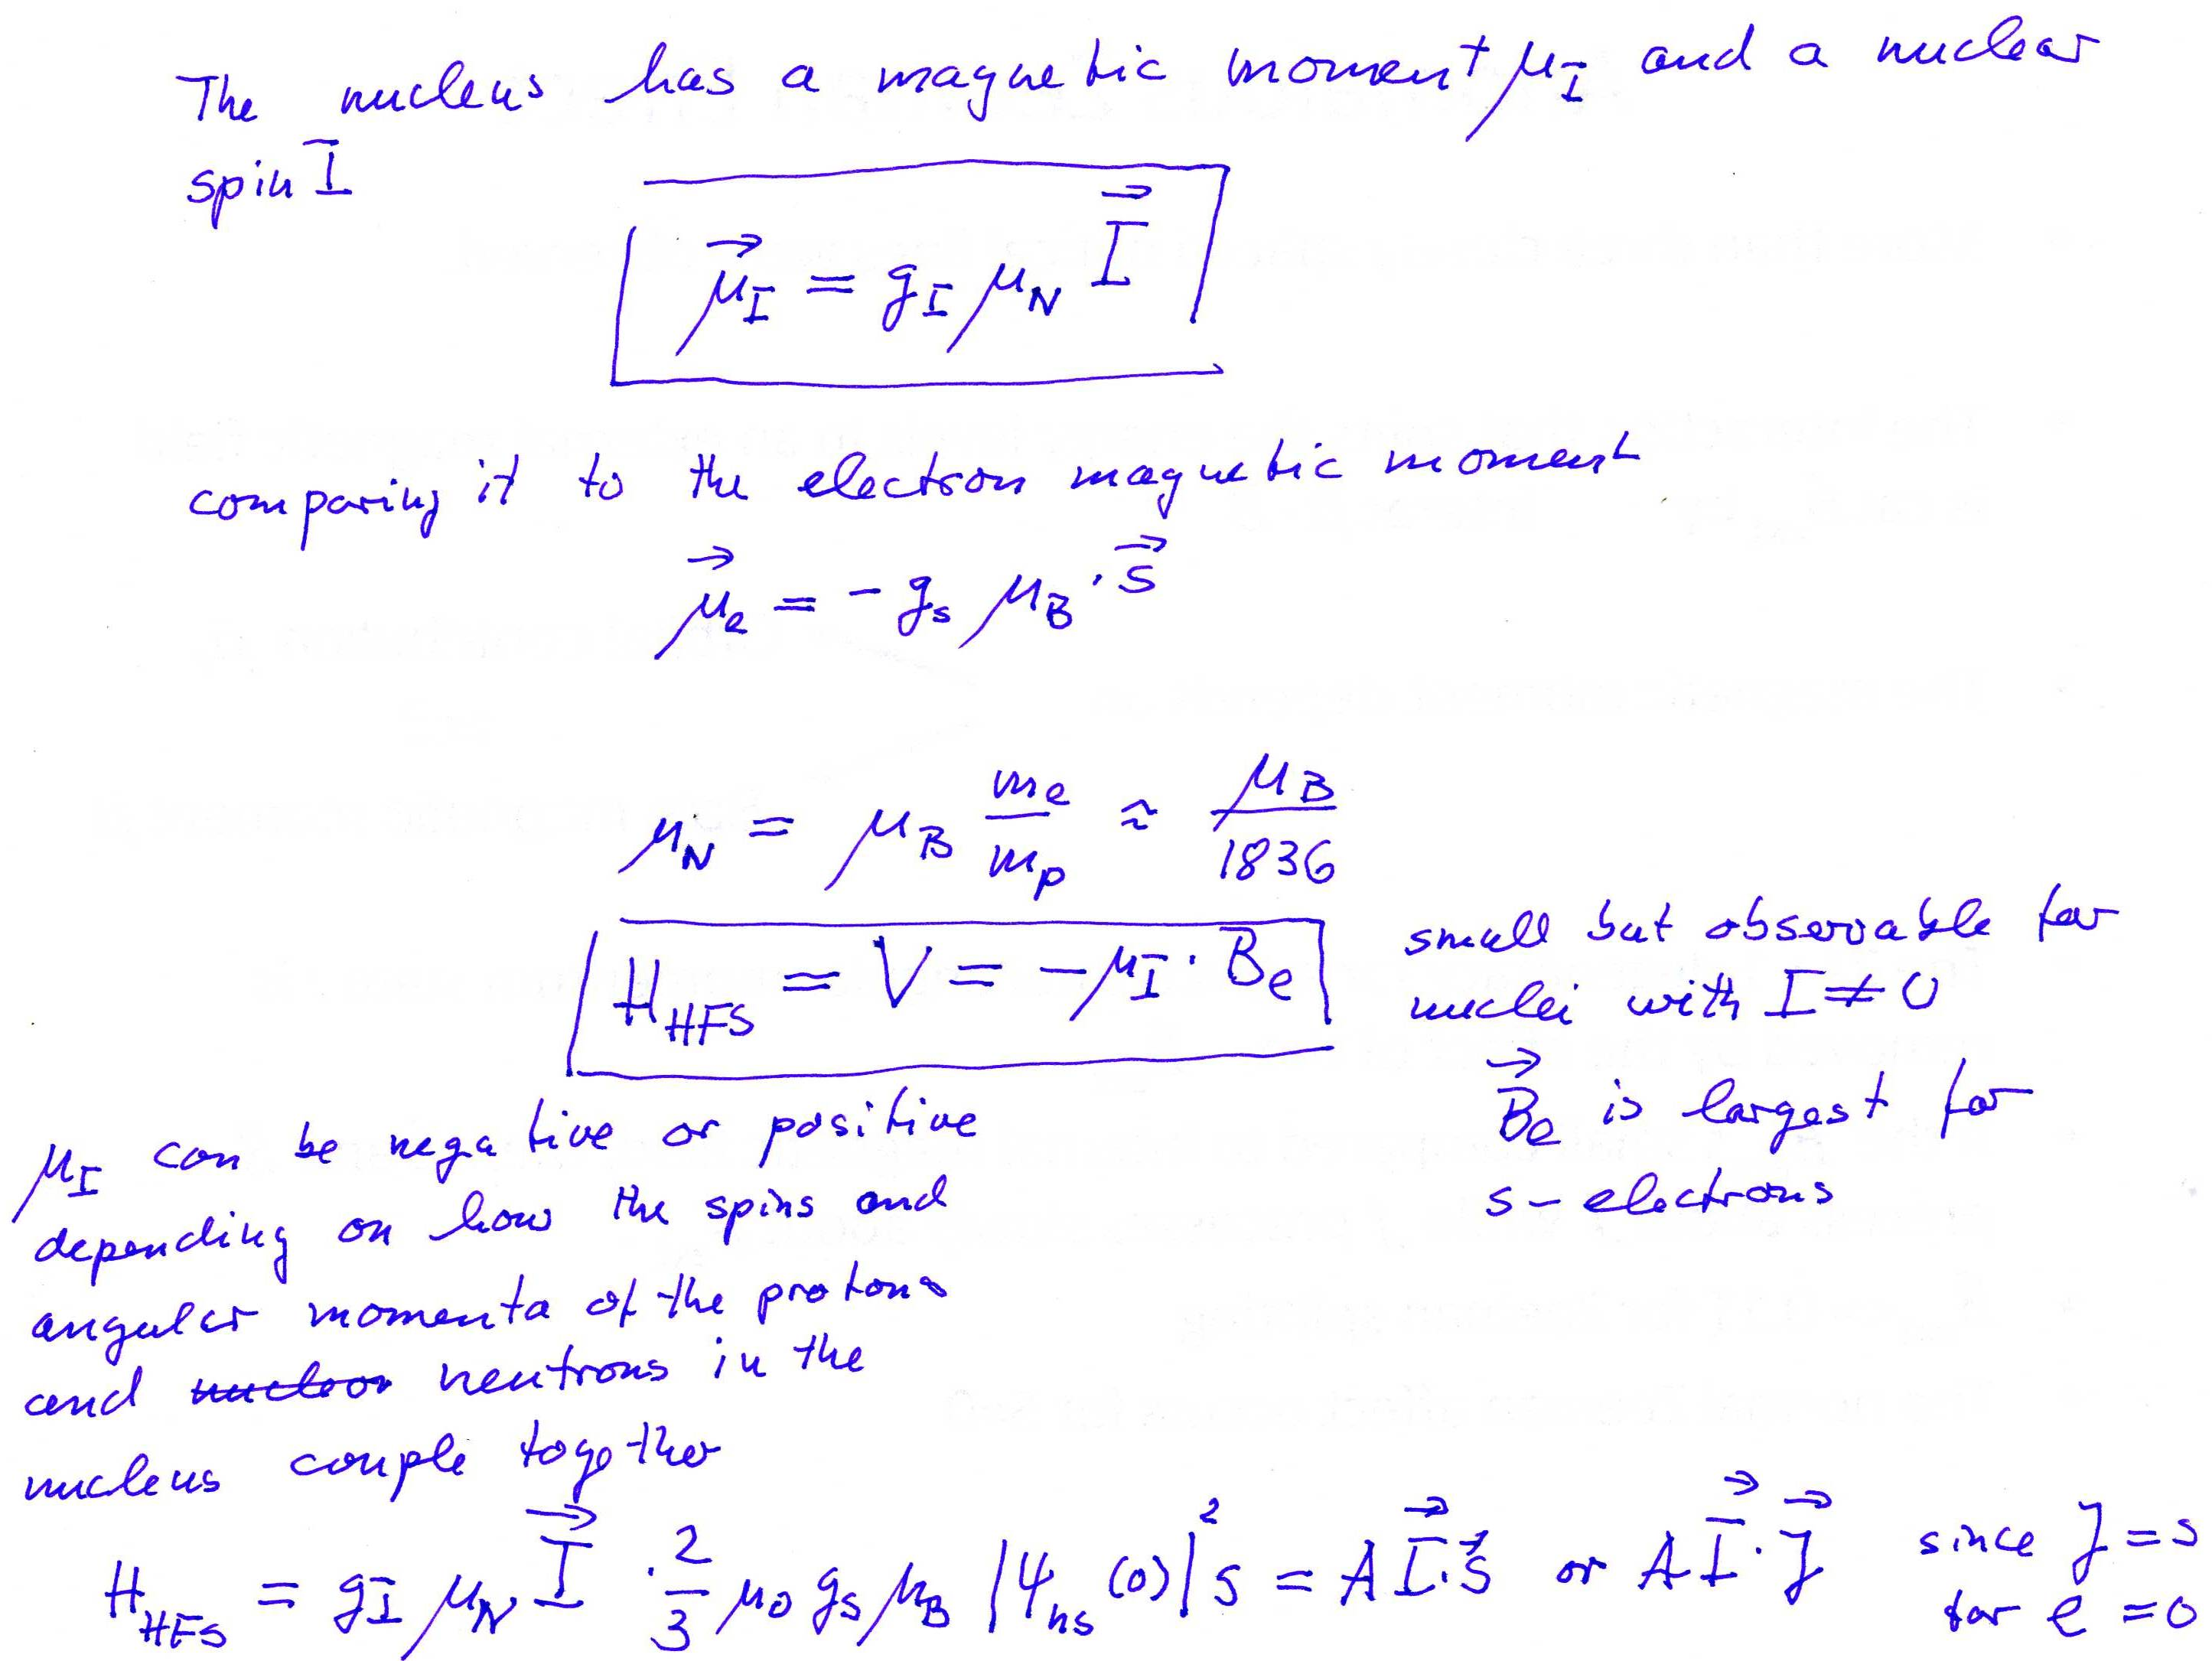 The nucleus has a magnetic moment μ_I and a nuclear
spin I⃗
μ⃗_I = g_I μ_N I⃗
comparing it to the electron magnetic moment
μ⃗_e = - g_s μ_B · s⃗
μ_N = μ_B m_e/m_p ≈ μ_B/1836
H_HFS = V = -μ_I · B_e
small but observable for
nuclei with I ≠ 0
B⃗_e is largest for
s-electrons
μ_I can be negative or positive
depending on how the spins and
angular momenta of the protons
and neutrons in the
nucleus couple together
H_HFS = g_I μ_N I⃗ · 2/3 μ_0 g_s μ_B |ψ_ns (0)|² s = A I⃗·s⃗ or A I⃗·J⃗ since J = s
for l = 0